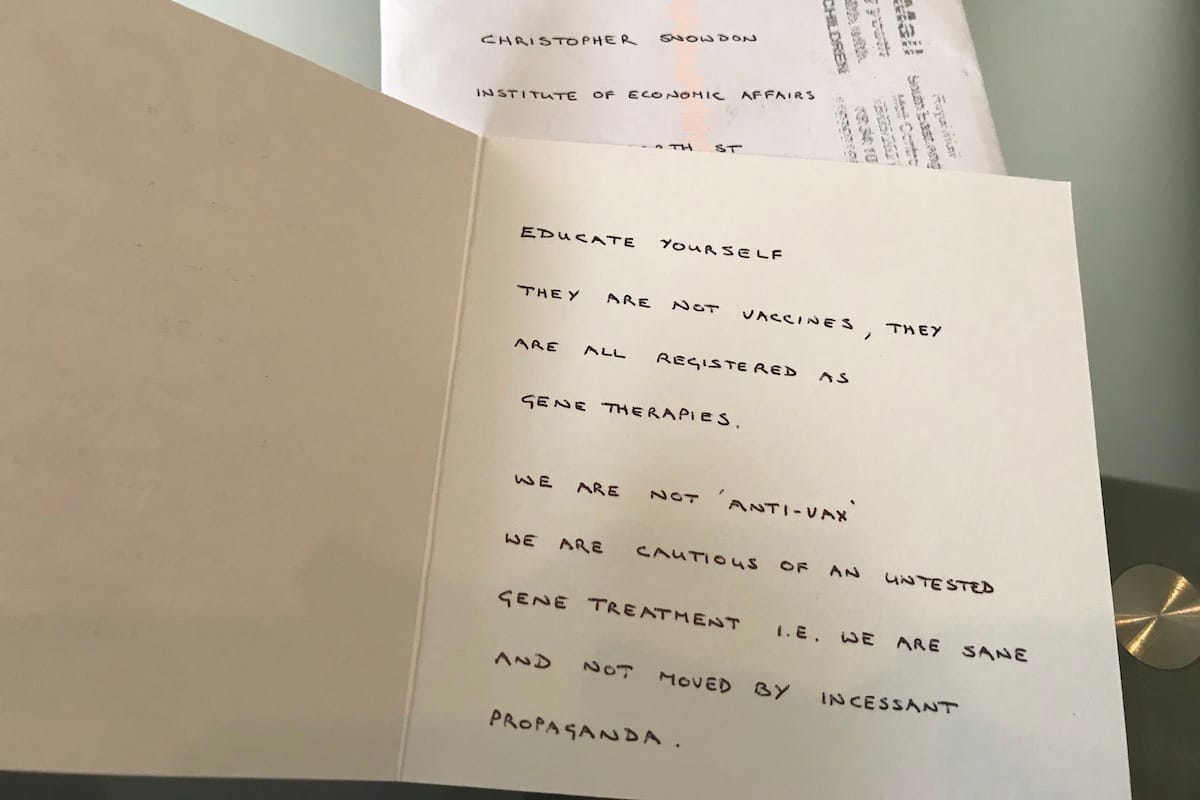 CHRISTOPHER SNOWDON
INSTITUTE OF ECONOMIC AFFAIRS
TH ST
Mail
CHILDREN
Royal Mail
EDUCATE YOURSELF
THEY ARE NOT VACCINES, THEY
ARE ALL REGISTERED AS
GENE THERAPIES.
WE ARE NOT 'ANTI-VAX'
WE ARE CAUTIOUS OF AN UNTESTED
GENE TREATMENT I.E. WE ARE SANE
AND NOT MOVED BY INCESSANT
PROPAGANDA.